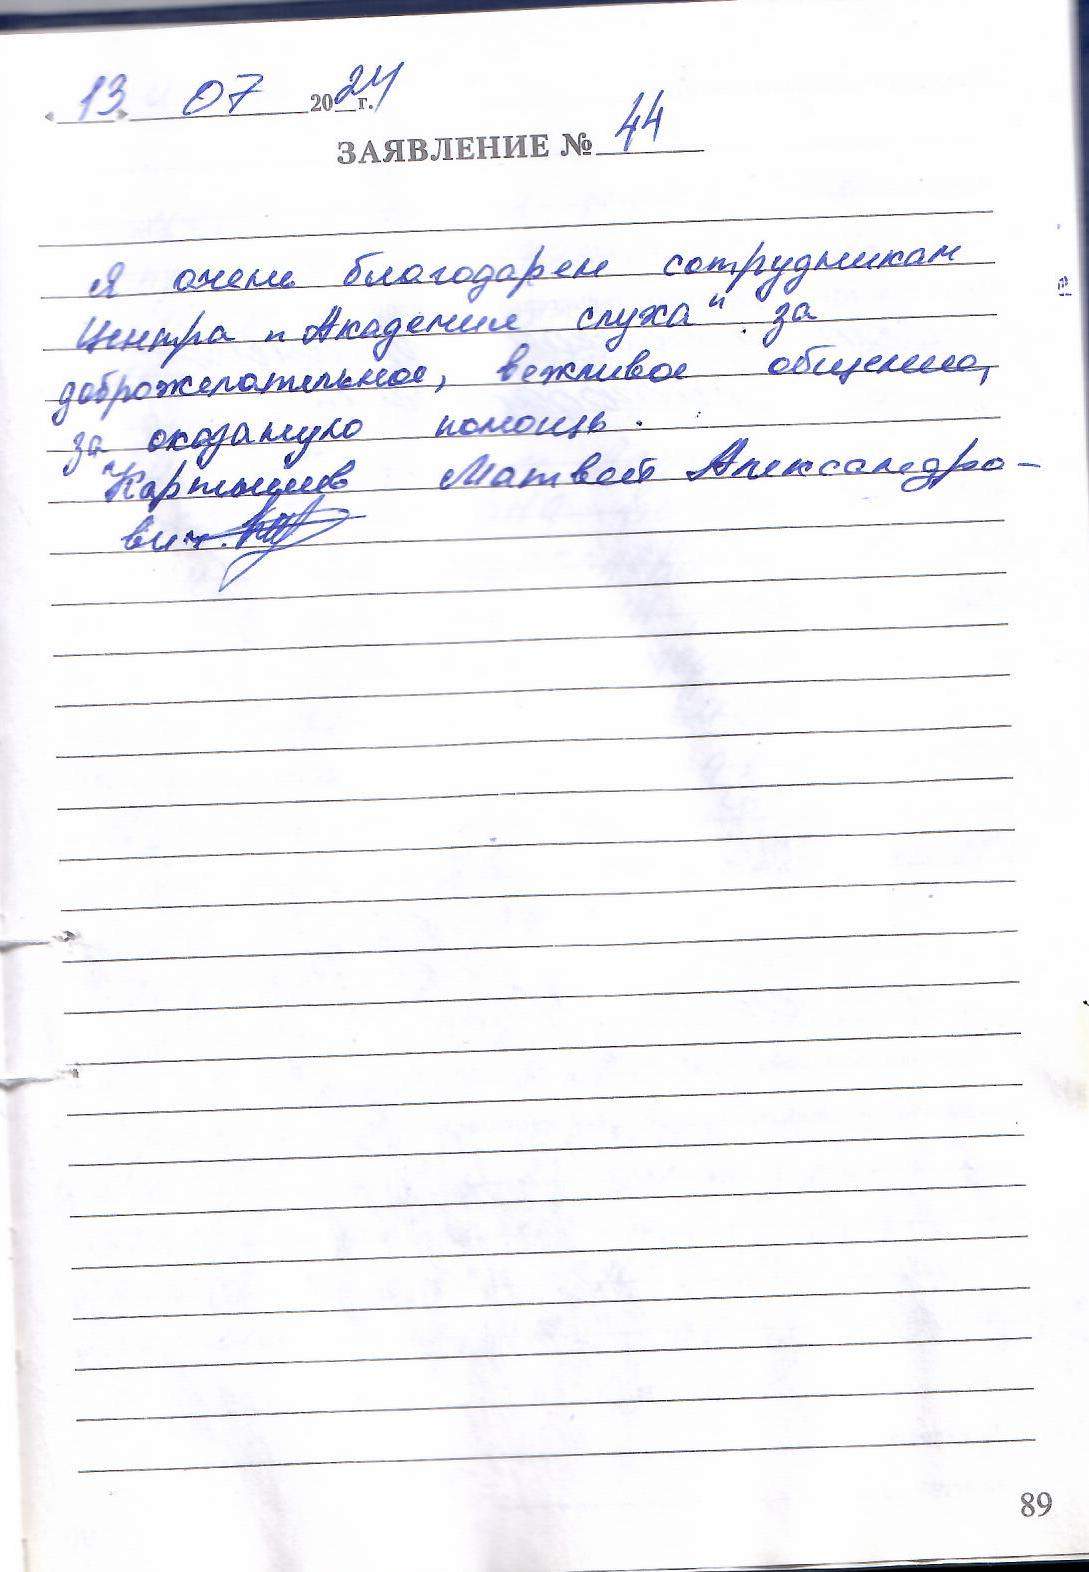 «13» 07 2024 г.
ЗАЯВЛЕНИЕ № 44
Я очень благодарен сотрудникам
Центра "Академия слуха" за
доброжелательное, вежливое общение,
за оказанную помощь.
Матвей Александро-
вич.
89